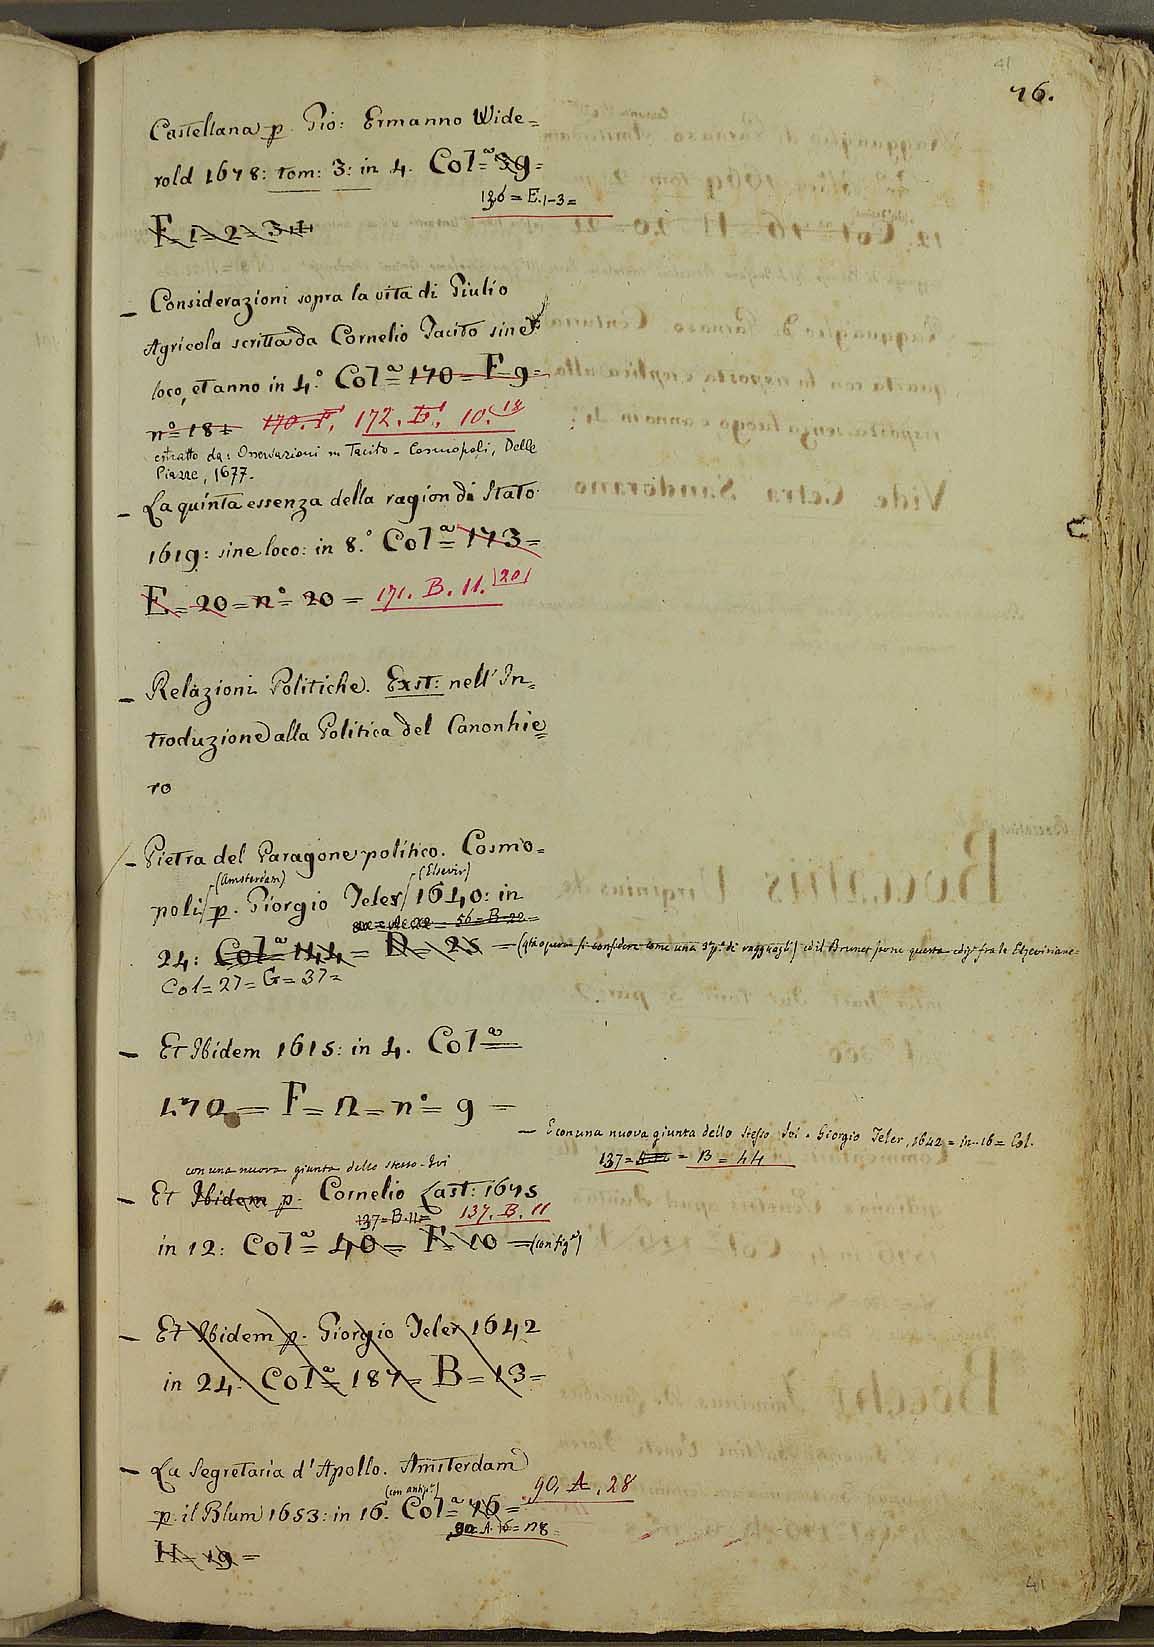 41
76.
Castellana p. Gio: Ermanno Wide=
rold 1678: tom: 3: in 4. Col=ᵃ 39=
136 = E. 1-3=
F = 1 = 2 = 3
— Considerazioni sopra la vita di Giulio
Agricola scritta da Cornelio Tacito sine
loco, et anno in 4.° Col=ᵃ 170 = F 9=
n° 181 170. F. 172. E. 10. 18
estratto da: Osservazioni su Tacito - Cosmopoli, Delle
Piazze, 1677.
— La quinta essenza della ragion di Stato
1619: sine loco: in 8.° Col=ᵃ 173=
E = 20 = n° = 20 = 171. B. 11. 20
— Relazioni Politiche. Exst: nell' In=
troduzione alla Politica del Canonhie=
ro
— Pietra del Paragone politico. Cosmo=
(Amsterdam) (Elsevir)
poli p. Giorgio Teler 1640: in
56 = B 22=
24: Col=ᵃ 144 = D = 25 — (qta opera si considera come una 3ª pᵉ di ragguagli) ed il Brunet pone questa edizᵉ fra le Elzeviriane=
Col = 27 = G = 37=
— Et Ibidem 1615: in 4. Col=ᵃ
170 = F = 12 = n° = 9 —
— E con una nuova giunta dello stesso Ivi - Giorgio Teler, 1642 = in-16 = Col.
137 = = B = 44
con una nuova giunta dello stesso - Ivi
— Et Ibidem p. Cornelio Last: 1675
137 = B. 11 = 137. B. 11
in 12: Col=ᵃ 40 = F = 10 = (con figᵉ)
— Et Ibidem p. Giorgio Teler 1642
in 24: Col=ᵃ 187 = B = 13=
— La Segretaria d'Apollo. Amsterdam
(con antipᵃ) 90. A. 28
p. il Blum 1653: in 16. Col=ᵃ 76 =
90 = A. 16 = n8=
H = 19 =
41